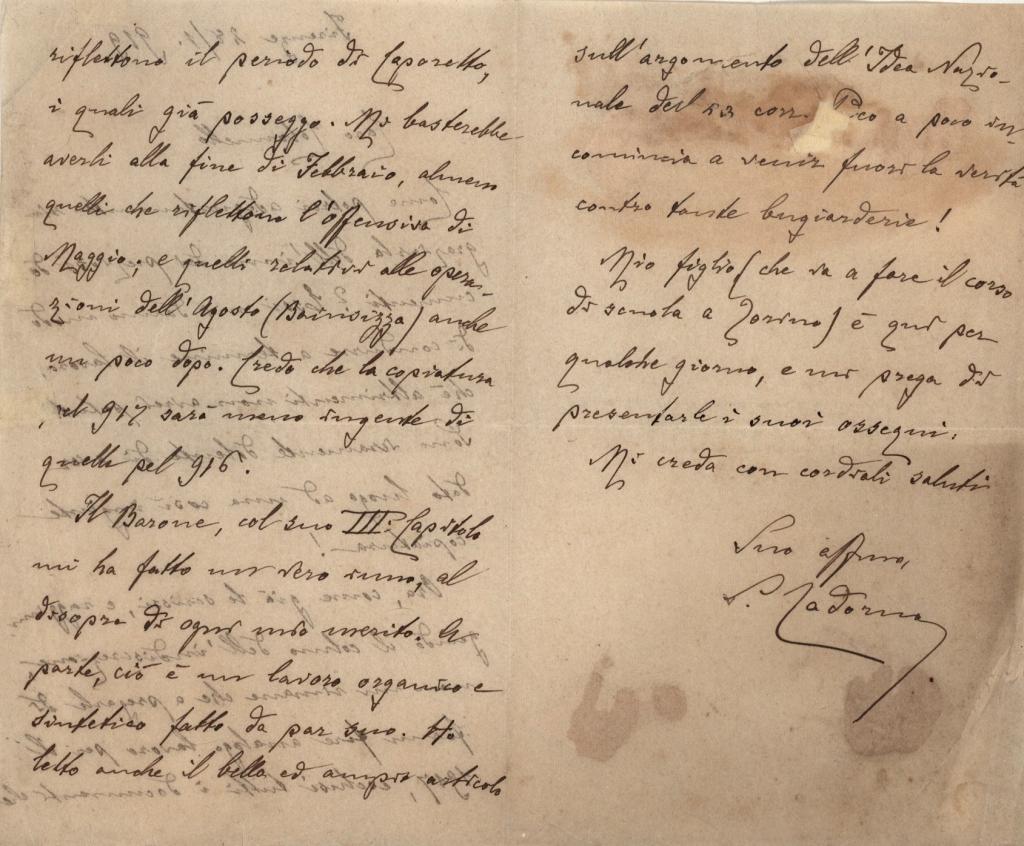 riflettono il periodo di Caporetto,
i quali già posseggo. Mi basterebbe
averli alla fine di Febbraio, almeno
quelli che riflettono l'offensiva di
Maggio; e quelli relativi alle opera-
zioni dell'Agosto (Bainsizza) anche
un poco dopo. Credo che la copiatura
pel 917 sarà meno ingente di
quella pel 916.
Il Barone, col suo III: Capitolo
mi ha fatto un vero inno, al
disopra di ogni mio merito. A
parte, ciò è un lavoro organico e
sintetico fatto da par suo. Ho
letto anche il bello ed ampio articolo
sull'argomento dell'Idea Nazio-
nale del 23 corr. Poco a poco in-
comincia a venir fuori la verità
contro tante bugiarderie!
Mio figlio (che va a fare il corso
di scuola a Torino) è qui per
qualche giorno, e mi prega di
presentarle i suoi ossequi.
Mi creda con cordiali saluti
Suo affmo,
L. Cadorna